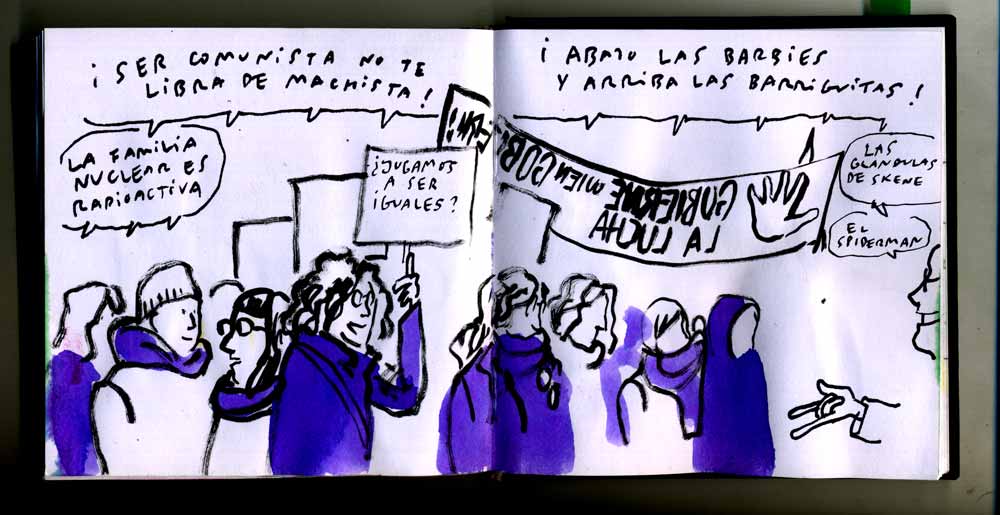 ¡SER COMUNISTA NO TE
LIBRA DE MACHISTA!
LA FAMILIA
NUCLEAR ES
RADIOACTIVA
¿JUGAMOS
A SER
IGUALES?
¡ABAJO LAS BARBIES
Y ARRIBA LAS BARRIGUITAS!
GOBIERNE
LA LUCHA
LAS
GLANDULAS
DE SKENE
EL
SPIDERMAN